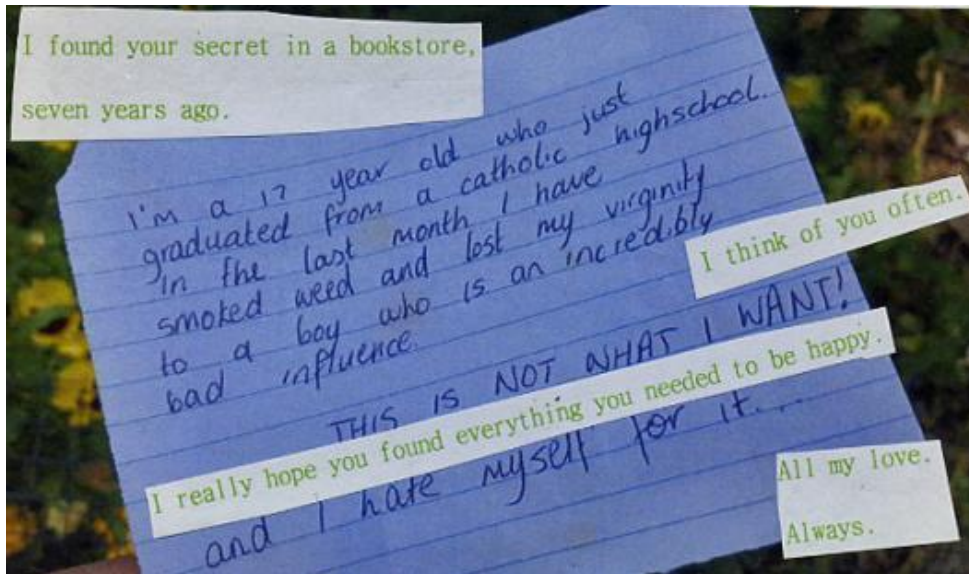 I found your secret in a bookstore,
seven years ago.
I'm a 17 year old who just
graduated from a catholic highschool.
In the last month I have
smoked weed and lost my virginity
to a boy who is an incredibly
bad influence.
I think of you often.
THIS IS NOT WHAT I WANT!
I really hope you found everything you needed to be happy.
and I hate myself for it....
All my love.
Always.